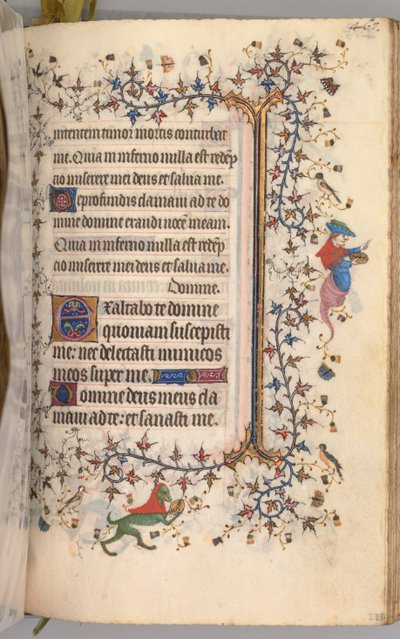 467.
intentem timor mortis conturbat
me. Quia in inferno nulla est redēp
cio miserere mei deus et salua me.
De profundis clamaui ad te do
mine domine exaudi uocē meam.
Quia in inferno nulla est redēp
cio miserere mei deus et salua me.
Domine.
Exaltabo te domine
quoniam suscepisti
me: nec delectasti inimicos
meos super me.
Domine deus meus cla
maui ad te: et sanasti me.